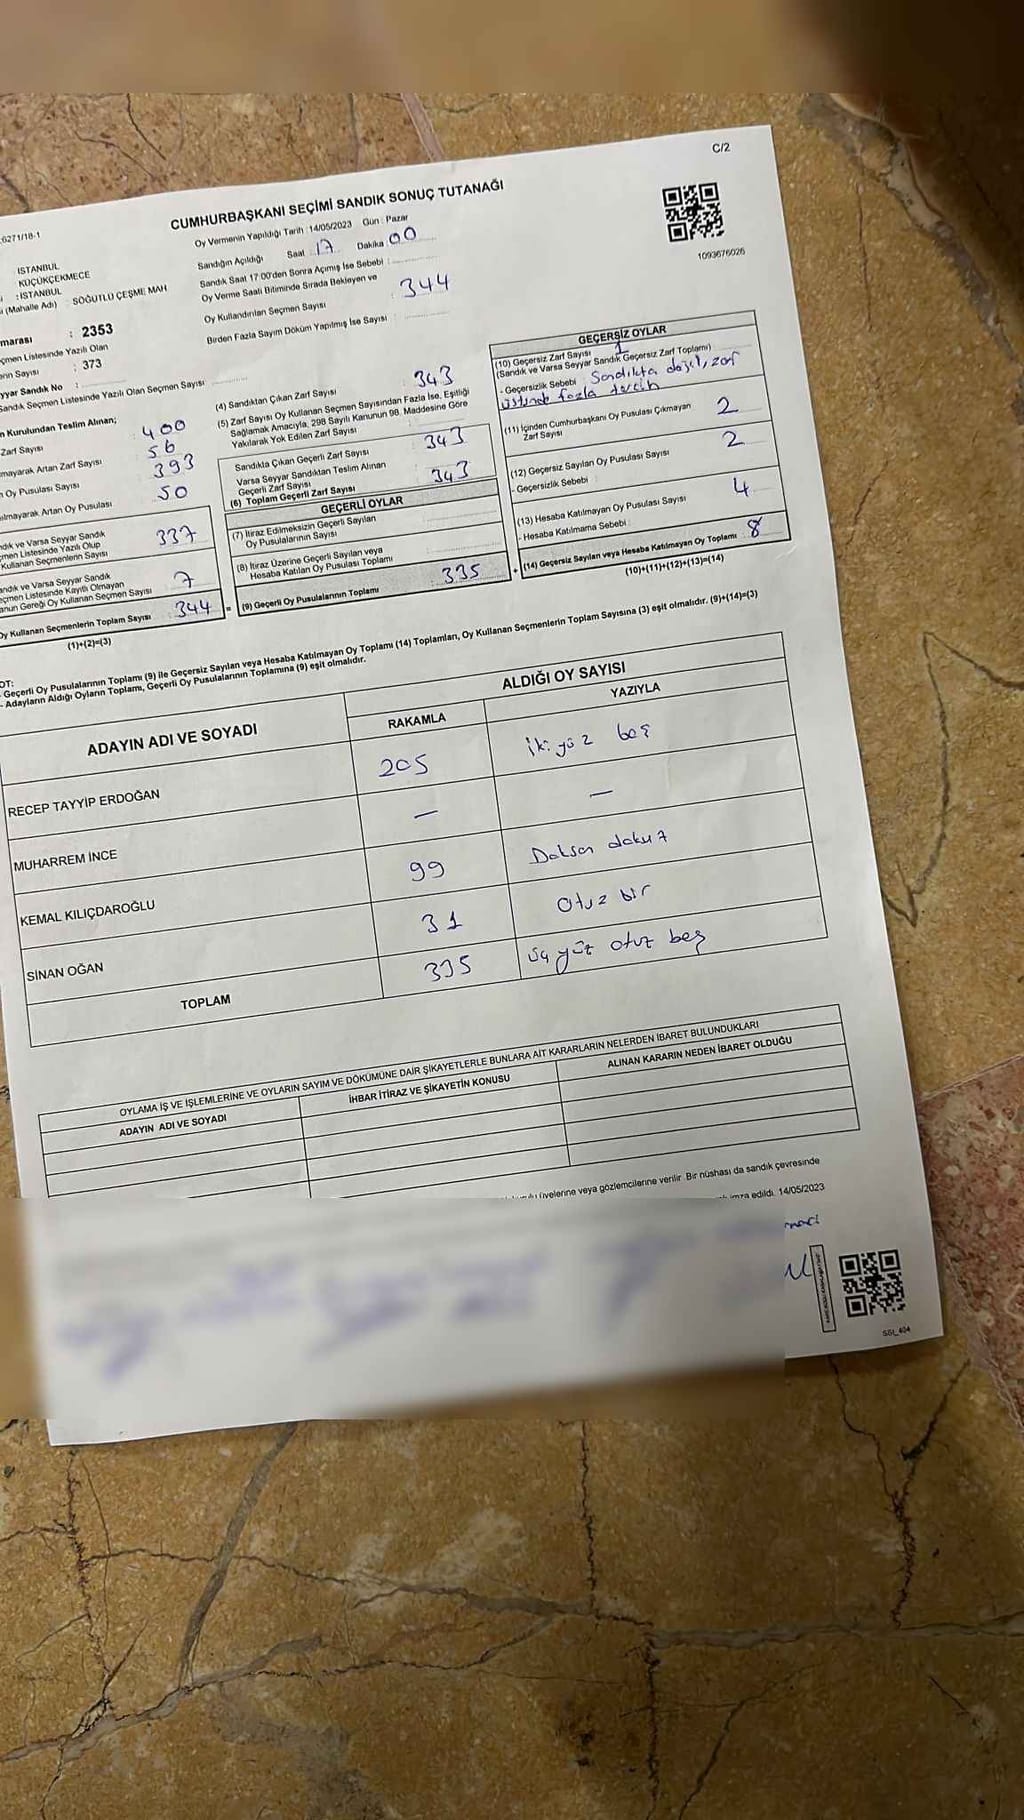 C/2
CUMHURBAŞKANI SEÇİMİ SANDIK SONUÇ TUTANAĞI
6271/18-1
Oy Vermenin Yapıldığı Tarih : 14/05/2023 Gün : Pazar
Sandığın Açıldığı Saat 17 Dakika 00
Sandık Saat 17:00'den Sonra Açımış İse Sebebi :
Oy Verme Saali Bitiminde Sırada Bekleyen ve
Oy Kullandırılan Seçmen Sayısı : 344
Birden Fazla Sayım Döküm Yapılmış İse Sayısı :
1093676026
İSTANBUL
KÜÇÜKÇEKMECE
: İSTANBUL
(Mahalle Adı) : SÖĞÜTLÜ ÇEŞME MAH
marası : 2353
çmen Listesinde Yazılı Olan
enin Sayısı : 373
yyar Sandık No :
Sandık Seçmen Listesinde Yazılı Olan Seçmen Sayısı
n Kurulundan Teslim Alınan;
Zarf Sayısı : 400
mayarak Artan Zarf Sayısı : 56
n Oy Pusulası Sayısı : 393
ılmayarak Artan Oy Pusulası : 50
ndık ve Varsa Seyyar Sandık
çmen Listesinde Yazılı Olup
Kullanan Seçmenlerin Sayısı 337
andık ve Varsa Seyyar Sandık
eçmen Listesinde Kayıtlı Olmayan
anun Gereği Oy Kullanan Seçmen Sayısı 7
Oy Kullanan Seçmenlerin Toplam Sayısı 344
(1)+(2)=(3)
(4) Sandıktan Çıkan Zarf Sayısı 343
(5) Zarf Sayısı Oy Kullanan Seçmen Sayısından Fazla İse, Eşitliği
Sağlamak Amacıyla, 298 Sayılı Kanunun 98. Maddesine Göre
Yakılarak Yok Edilen Zarf Sayısı :
Sandıkta Çıkan Geçerli Zarf Sayısı 343
Varsa Seyyar Sandıktan Teslim Alınan
Geçerli Zarf Sayısı
(6) Toplam Geçerli Zarf Sayısı 343
GEÇERLİ OYLAR
(7) İtiraz Edilmeksizin Geçerli Sayılan
Oy Pusulasının Sayısı
(8) İtiraz Üzerine Geçerli Sayılan veya
Hesaba Katılan Oy Pusulası Toplamı
= (9) Geçerli Oy Pusulalarının Toplamı 335
GEÇERSİZ OYLAR
(10) Geçersiz Zarf Sayısı 1
(Sandık ve Varsa Seyyar Sandık Geçersiz Zarf Toplamı)
- Geçersizlik Sebebi Sandıkta değil, zarf
üstünde fazla tercih
(11) İçinden Cumhurbaşkanı Oy Pusulası Çıkmayan
Zarf Sayısı 2
(12) Geçersiz Sayılan Oy Pusulası Sayısı 2
- Geçersizlik Sebebi :
(13) Hesaba Katılmayan Oy Pusulası Sayısı 4
- Hesaba Katılmama Sebebi :
+ (14) Geçersiz Sayılan veya Hesaba Katılmayan Oy Toplamı 8
(10)+(11)+(12)+(13)=(14)
OT:
- Geçerli Oy Pusulalarının Toplamı (9) İle Geçersiz Sayılan veya Hesaba Katılmayan Oy Toplamı (14) Toplamları, Oy Kullanan Seçmenlerin Toplam Sayısına (3) eşit olmalıdır. (9)+(14)=(3)
- Adayların Aldığı Oyların Toplamı, Geçerli Oy Pusulalarının Toplamına (9) eşit olmalıdır.
ADAYIN ADI VE SOYADI ALDIĞI OY SAYISI
RAKAMLA YAZIYLA
RECEP TAYYİP ERDOĞAN 205 iki yüz beş
MUHARREM İNCE — —
KEMAL KILIÇDAROĞLU 99 Doksan dokuz
SİNAN OĞAN 31 Otuz bir
TOPLAM 335 üç yüz otuz beş
OYLAMA İŞ VE İŞLEMLERİNE VE OYLARIN SAYIM VE DÖKÜMÜNE DAİR ŞİKAYETLERLE BUNLARA AİT KARARLARIN NELERDEN İBARET BULUNDUKLARI
ADAYIN ADI VE SOYADI İHBAR İTİRAZ VE ŞİKAYETİN KONUSU ALINAN KARARIN NEDEN İBARET OLDUĞU
üyelerine veya gözlemcilerine verilir. Bir nüshası da sandık çevresinde
imza edildi. 14/05/2023
SGI_404